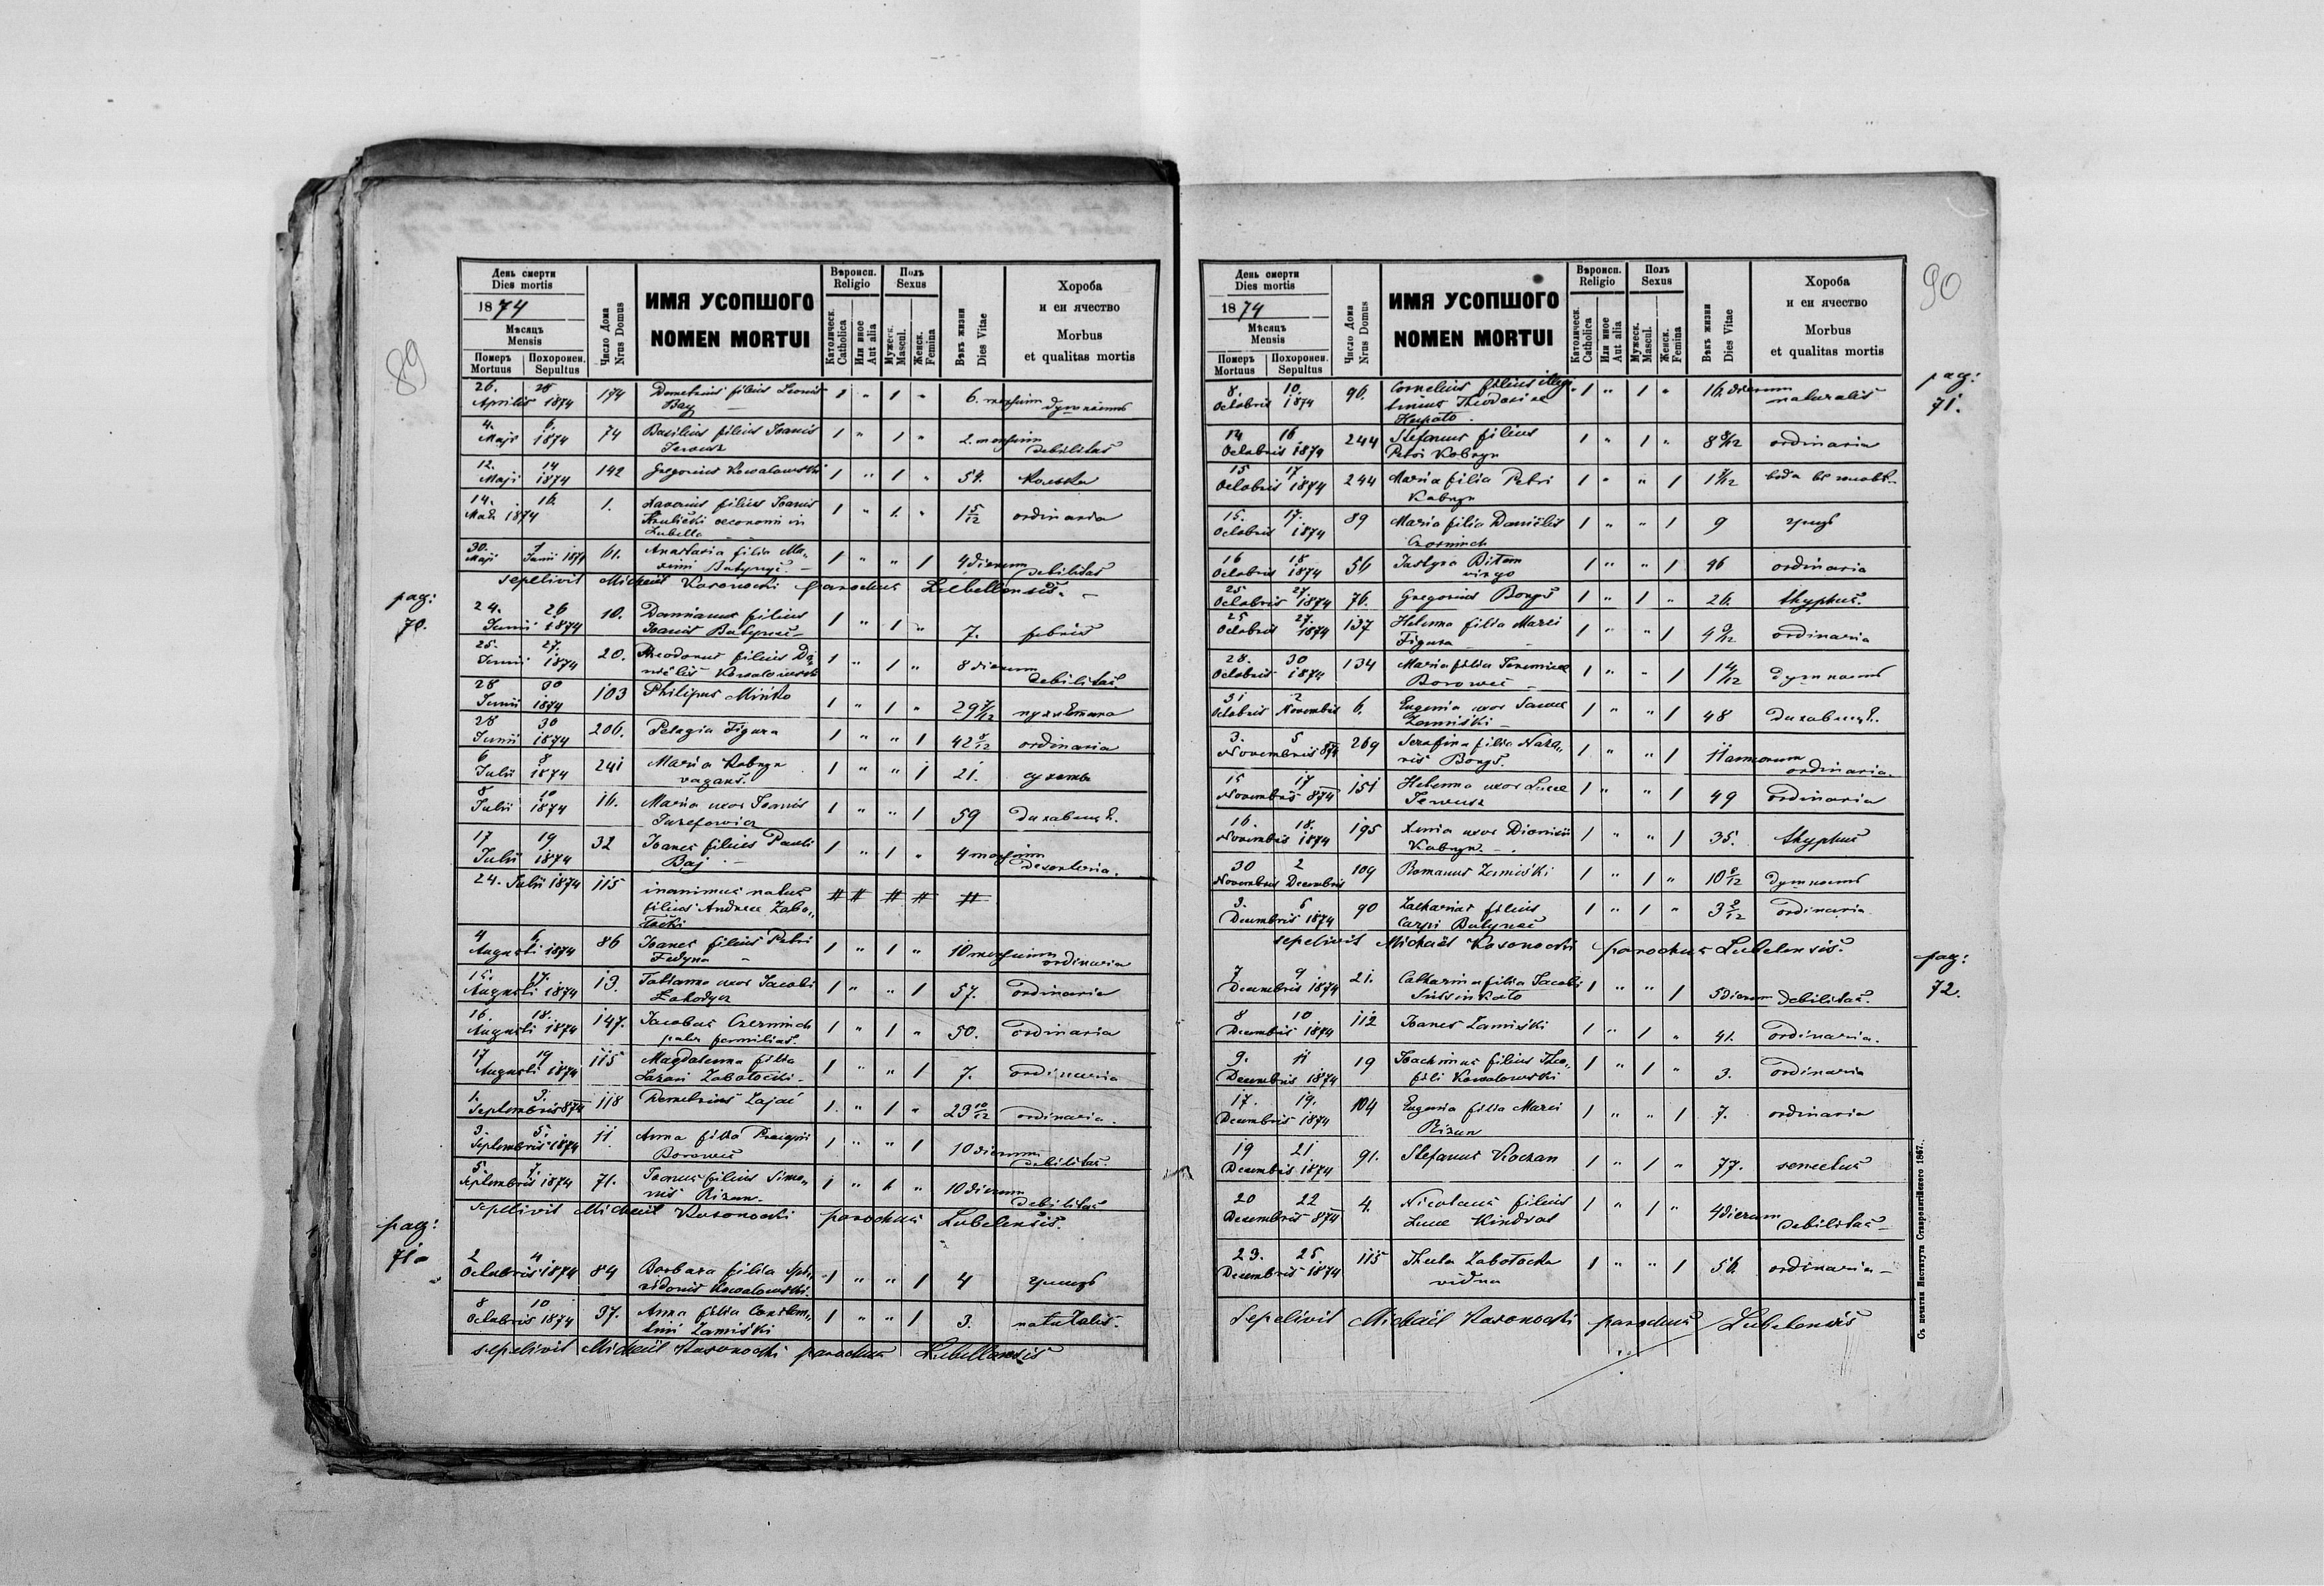 89
День смерти
Dies mortis
1874
Мѣсяцъ
Mensis
Померъ Похоронен.
Mortuus Sepultus
Число Дома
Nrus Domus
ИМЯ УСОПШОГО
NOMEN MORTUI
Вѣроисп.
Religio
Католическ.
Catholica
Или иное
Aut alia
Полъ
Sexus
Мужеск.
Mascul.
Женск.
Femina
Вѣкъ жизни
Dies Vitae
Хороба
и еи ячество
Morbus
et qualitas mortis
26. 28 174 Demetrius filius Leonis 1 " 1 " 6. mensium
Aprilis 1874 Baj
4. 6. 74 Basilius filius Joanis 1 " 1 " 2. mensium
Maji 1874 debilitas
12. 14 142 Gregorius Kowalowski 1 " 1 " 54. колька
Maji 1874
14. 16. 1. filius Joanis 1 " 1. " 1 5/12 ordinaria
Maji 1874 oeconomi in
Lubella
30. 1 61. Anastasia filia Ma„ 1 " " 1 4 dierum
Maji Junii 1874 ximi Batyneć debilitas
sepelivit Michaël Kosonocki parochus Lubellensis.
pag:
70.
24. 26 10. Damianus filius 1 " 1 " 7. febris
Junii 1874 Joanis Batyneć
25. 27. 20. Theodorus filius Da„ 1 " 1 " 8 dierum
Junii 1874 niëlis Kowalowski debilitas.
28 30 103 Philipus Minko 1 " 1 " 29
Junii 1874
28 30 206. Pelagia Figura 1 " " 1 42 ordinaria
Junii 1874
6 8 241 Maria Kobryn 1 " " 1 21. сухоты
Julii 1874 vagans.
8 10 16. Maria uxor Joanis 1 " " 1 59
Julii 1874 Juzefowicz
17 19 32 Joanes filius Pauli 1 " 1 " 4 mensium
Julii 1874 Baj
24. Julii 1874 115 inanimus natus # # # # #
filius Andreae Zabo„
łocki
4 6 86 Joanes filius Petri 1 " 1 " 10 mensium
Augusti 1874 Fedyna ordinaria
15. 17. 13. Tatianna uxor Jacobi 1 " " 1 57. ordinaria
Augusti 1874
16. 18. 147. Jacobus Czerninch 1 " 1 " 50. ordinaria
Augusti 1874 pater familias.
17 19 115 Magdalenna filia 1 " " 1 7. ordinaria
Augusti 1874 Lazari Zabotocki
1. 3. 118 Demetrius Zajać 1. " 1 " 23 10/12 ordinaria.
Septembris 874
3. 5. 11. Anna filia 1 " " 1 10 dierum
Septembris 1874 Boroweć debilitas.
5. 7. 71. filius Simo„ 1 " 1 " 10 dierum
Septembris 1874 nis Rizun debilitas
sepelivit Michaël Kosonocki parochus Lubelensis.
pag:
71.
2 4 84 Barbara filia Spi„ 1 " " 1 4
Octobris 1874 ridonis Kowalowski
8 10 37. Anna filia Constan„ 1 " " 1 3. naturalis.
Octobris 1874 tini Zamiski
sepelivit Michaël Kosonocki parochus Lubellensis
90
День смерти
Dies mortis
1874
Мѣсяцъ
Mensis
Померъ Похоронен.
Mortuus Sepultus
Число Дома
Nrus Domus
ИМЯ УСОПШОГО
NOMEN MORTUI
Вѣроисп.
Religio
Католическ.
Catholica
Или иное
Aut alia
Полъ
Sexus
Мужеск.
Mascul.
Женск.
Femina
Вѣкъ жизни
Dies Vitae
Хороба
и еи ячество
Morbus
et qualitas mortis
pag:
71.
8. 10. 90. Cornelius filius illegi„ 1 " 1 " 16 dierum
Octobris 1874 timus Theodosiae naturalis
14 16 244 Stefanus filius 1 " 1 " 8 ordinaria
Octobris 1874 Petri Kobryn
15 17 244 Maria filia Petri 1 " " 1
Octobris 1874 Kobryn
15. 17. 89 Maria filia Daniëlis 1 " " 1 9
Octobris 1874 Czerninch
16 18 56 Justyna 1 " " 1 46 ordinaria
Octobris 1874 virgo
25 27. 76. Gregorius Bongś 1 " 1 " 26. thyphus.
Octobris 1874
25 27. 137 Helenna filia Marci 1 " " 1 4 ordinaria
Octobris 1874 Figura
28. 30 134 Maria filia Jeremiae 1 " " 1
Octobris 1874 Boroweć
31 2 6. Eugenia uxor 1 " " 1 48
Octobris Novembris Zamiski
3. 5 269 Serafina filia Naza„ 1 " " 1 11 annorum
Novembris 874 ris Bongś. ordinaria.
15 17 151 Helenna uxor Lucae 1 " " 1 49 ordinaria
Novembris 874
16. 18. 195 Xenia uxor Dionisii 1 " " 1 35. thyphus
Novembris 1874 Kobryn
30 2 109 Romanus Zamiski 1 " 1 " 10
Novembris Decembris
3. 5 90 Zacharias filius 1 " 1 " 3 ordinaria
Decembris 1874 Carpi Batyneć
sepelivit Michaël Kosonocki parochus Lubelensis.
pag:
72.
7 9 21. Catharina filia Jacobi 1 " " 1 5 dierum debilitas.
Decembris 1874
8 10 112 Joanes Zamiski 1 " 1 " 41. ordinaria.
Decembris 1874
9. 11 19 Joachimus filius Theo„ 1 " 1 " 3. ordinaria
Decembris 1874 fili Kowalowski
17. 19. 104 Eugenia filia Marci 1 " " 1 7. ordinaria
Decembris 1874 Rizun
19 21 91. Stefanus Koczan 1 " 1 " 77. senectus
Decembris 1874
20 22 4. Nicolaus filius 1 " 1 " 4 dierum
Decembris 874 Lucae Kindrat debilitas
23. 25. 115 Thecla Zabotocka 1 " " 1 56. ordinaria
Decembris 1874 vidua
Sepelivit Michaël Kosonocki parochus Lubelensis
Съ печатни Института Ставропигійского 1867.